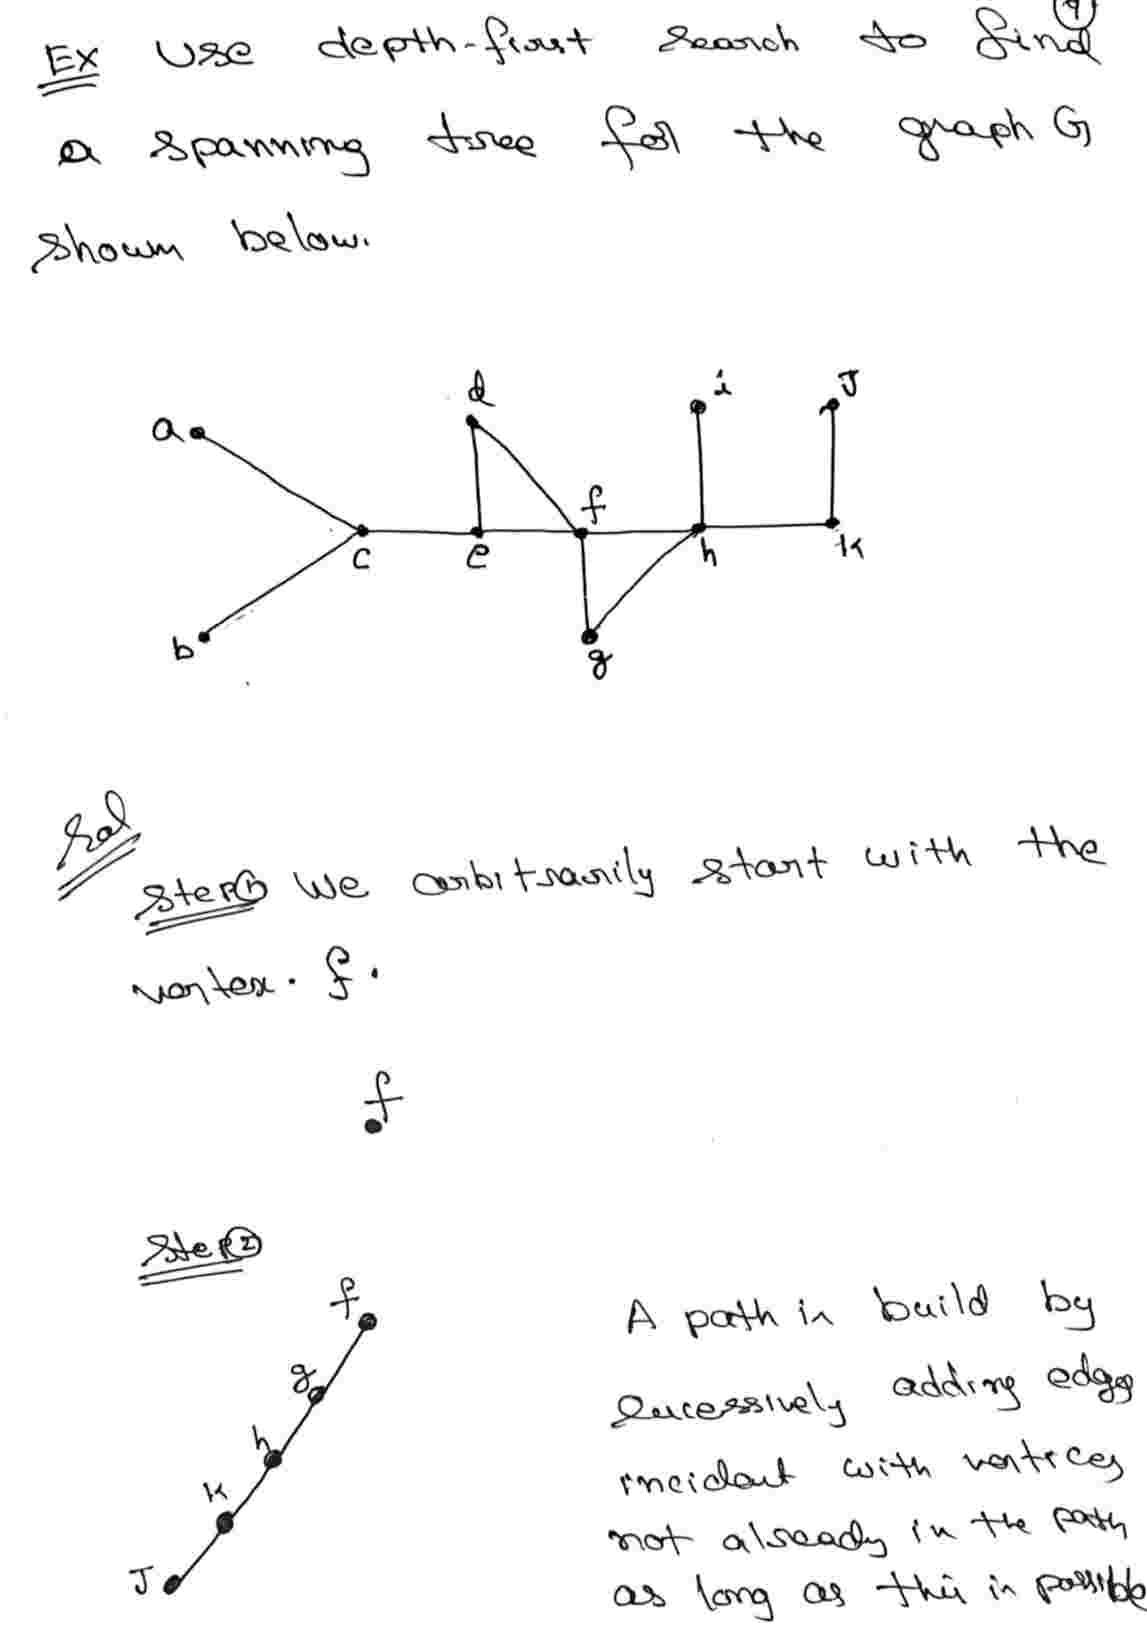 9
Ex Use depth-first search to find
a spanning tree for the graph G
shown below.
d
i
J
a
f
c
e
h
k
b
g
Sol
Step① We arbitrarily start with the
vertex. f.
f
Step②
f
A path is build by
g
sucessively adding edges
h
incident with vertices
k
not already in the path
J
as long as this is possible